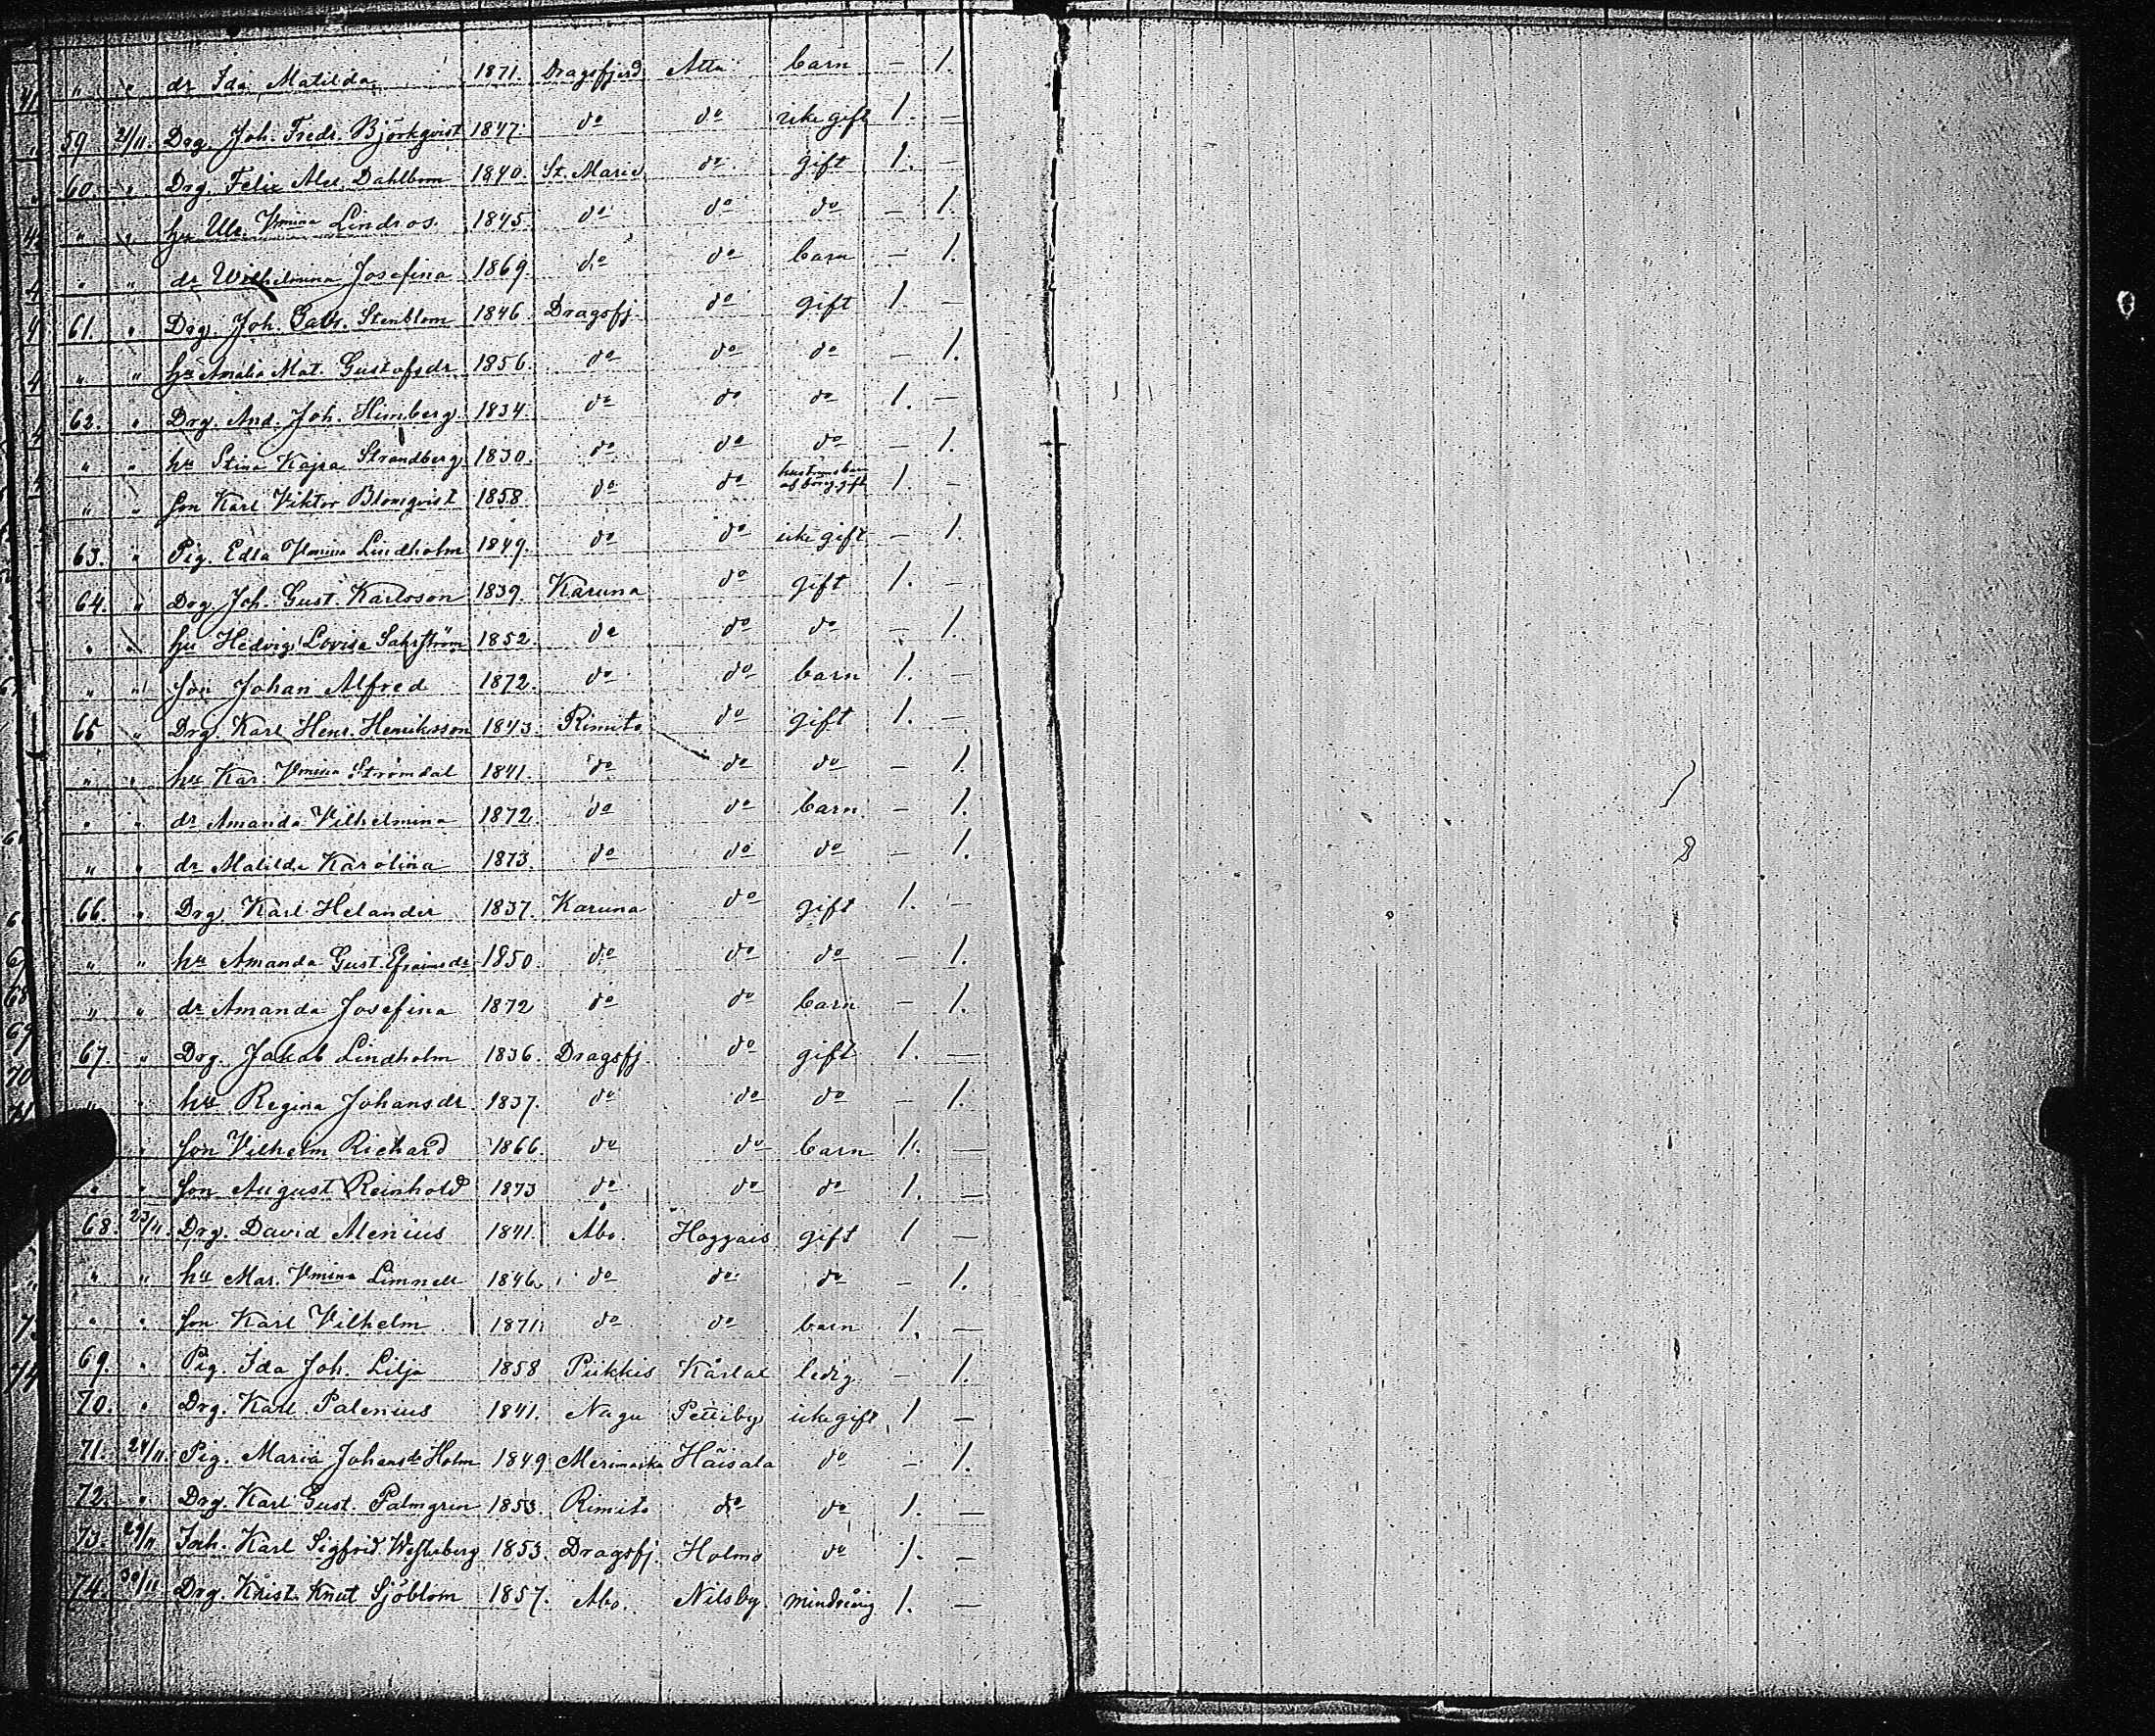 " " dr Ida Matilda 1871. Dragsfjerd Atta barn — 1.
59 21/11. Drg. Joh. Fredr. Björkqvist 1847. do do icke gift 1. —
60. " Drg. Felix Alex. Dahlbom 1840. St. Marie do gift 1. —
" " hu Ulr. Vmina Lindros. 1845. do do do — 1.
" " dr Wilhelmina Josefina 1869. do do barn — 1.
61. " Drg. Joh. Gabr. Stenblom 1846. Dragsfj. do gift 1. —
" " hu Amalia Mat. Gustafsdr 1856. do do do — 1.
62. " Drg. And. Joh. Himberg 1834. do do do 1. —
" " hu Stina Kajsa Strandberg 1830. do do do — 1.
" " son Karl Viktor Blomqvist 1858 do do 1. —
63. " Pig. Edla Vmina Lindholm 1849. do do icke gift — 1.
64. " Drg. Joh. Gust. Karlsson 1839. Karuna do gift 1. —
" " hu Hedvig Lovisa 1852. do do do — 1.
" " son Johan Alfred 1872. do do barn 1. —
65 " Drg. Karl Henr. Henriksson 1843. Rimito do gift 1. —
" " hu Kar. Vmina Strömdal 1841. do do do — 1.
" " dr Amanda Vilhelmina 1872. do do barn. — 1.
" " dr Matilda Karolina 1873. do do do — 1.
66. " Drg. Karl Helander 1837. Karuna do gift 1. —
" " hu Amanda Gust. Efraimsdr 1850. do do do — 1.
" " dr Amanda Josefina 1872 do do barn — 1.
67. " Drg. Jakob Lindholm 1836. Dragsfj. do gift 1. —
" " hu Regina Johansdr. 1837. do do do — 1.
" son Vilhelm Richard 1866. do do barn 1. —
" " son August Reinhold 1873 do do do 1. —
68. 23/11. Drg. David Menius 1841. Åbo. Hoggais gift 1 —
" " hu Mar. Vmina Limnell 1846. do do do — 1.
" " son Karl Vilhelm 1871. do do barn 1. —
69. " Pig. Ida Joh. Lilja 1858 Piikkis Kårlal ledig — 1.
70. " Drg. Karl Palenius 1841. Nagu Pettiby icke gift 1 —
71. 24/11. Pig. Maria Johansdr Holm 1849. Merimasku Häisala do — 1.
72. " Drg. Karl Gust. Palmgren 1853. Rimito do do 1. —
73. 29/11 Inh. Karl Sigfrid Westerberg 1853. Dragsfj. Holmo do 1. —
74. 30/11 Drg. Krist. Knut Sjöblom 1857. Åbo. Nilsby. mindrårig 1. —